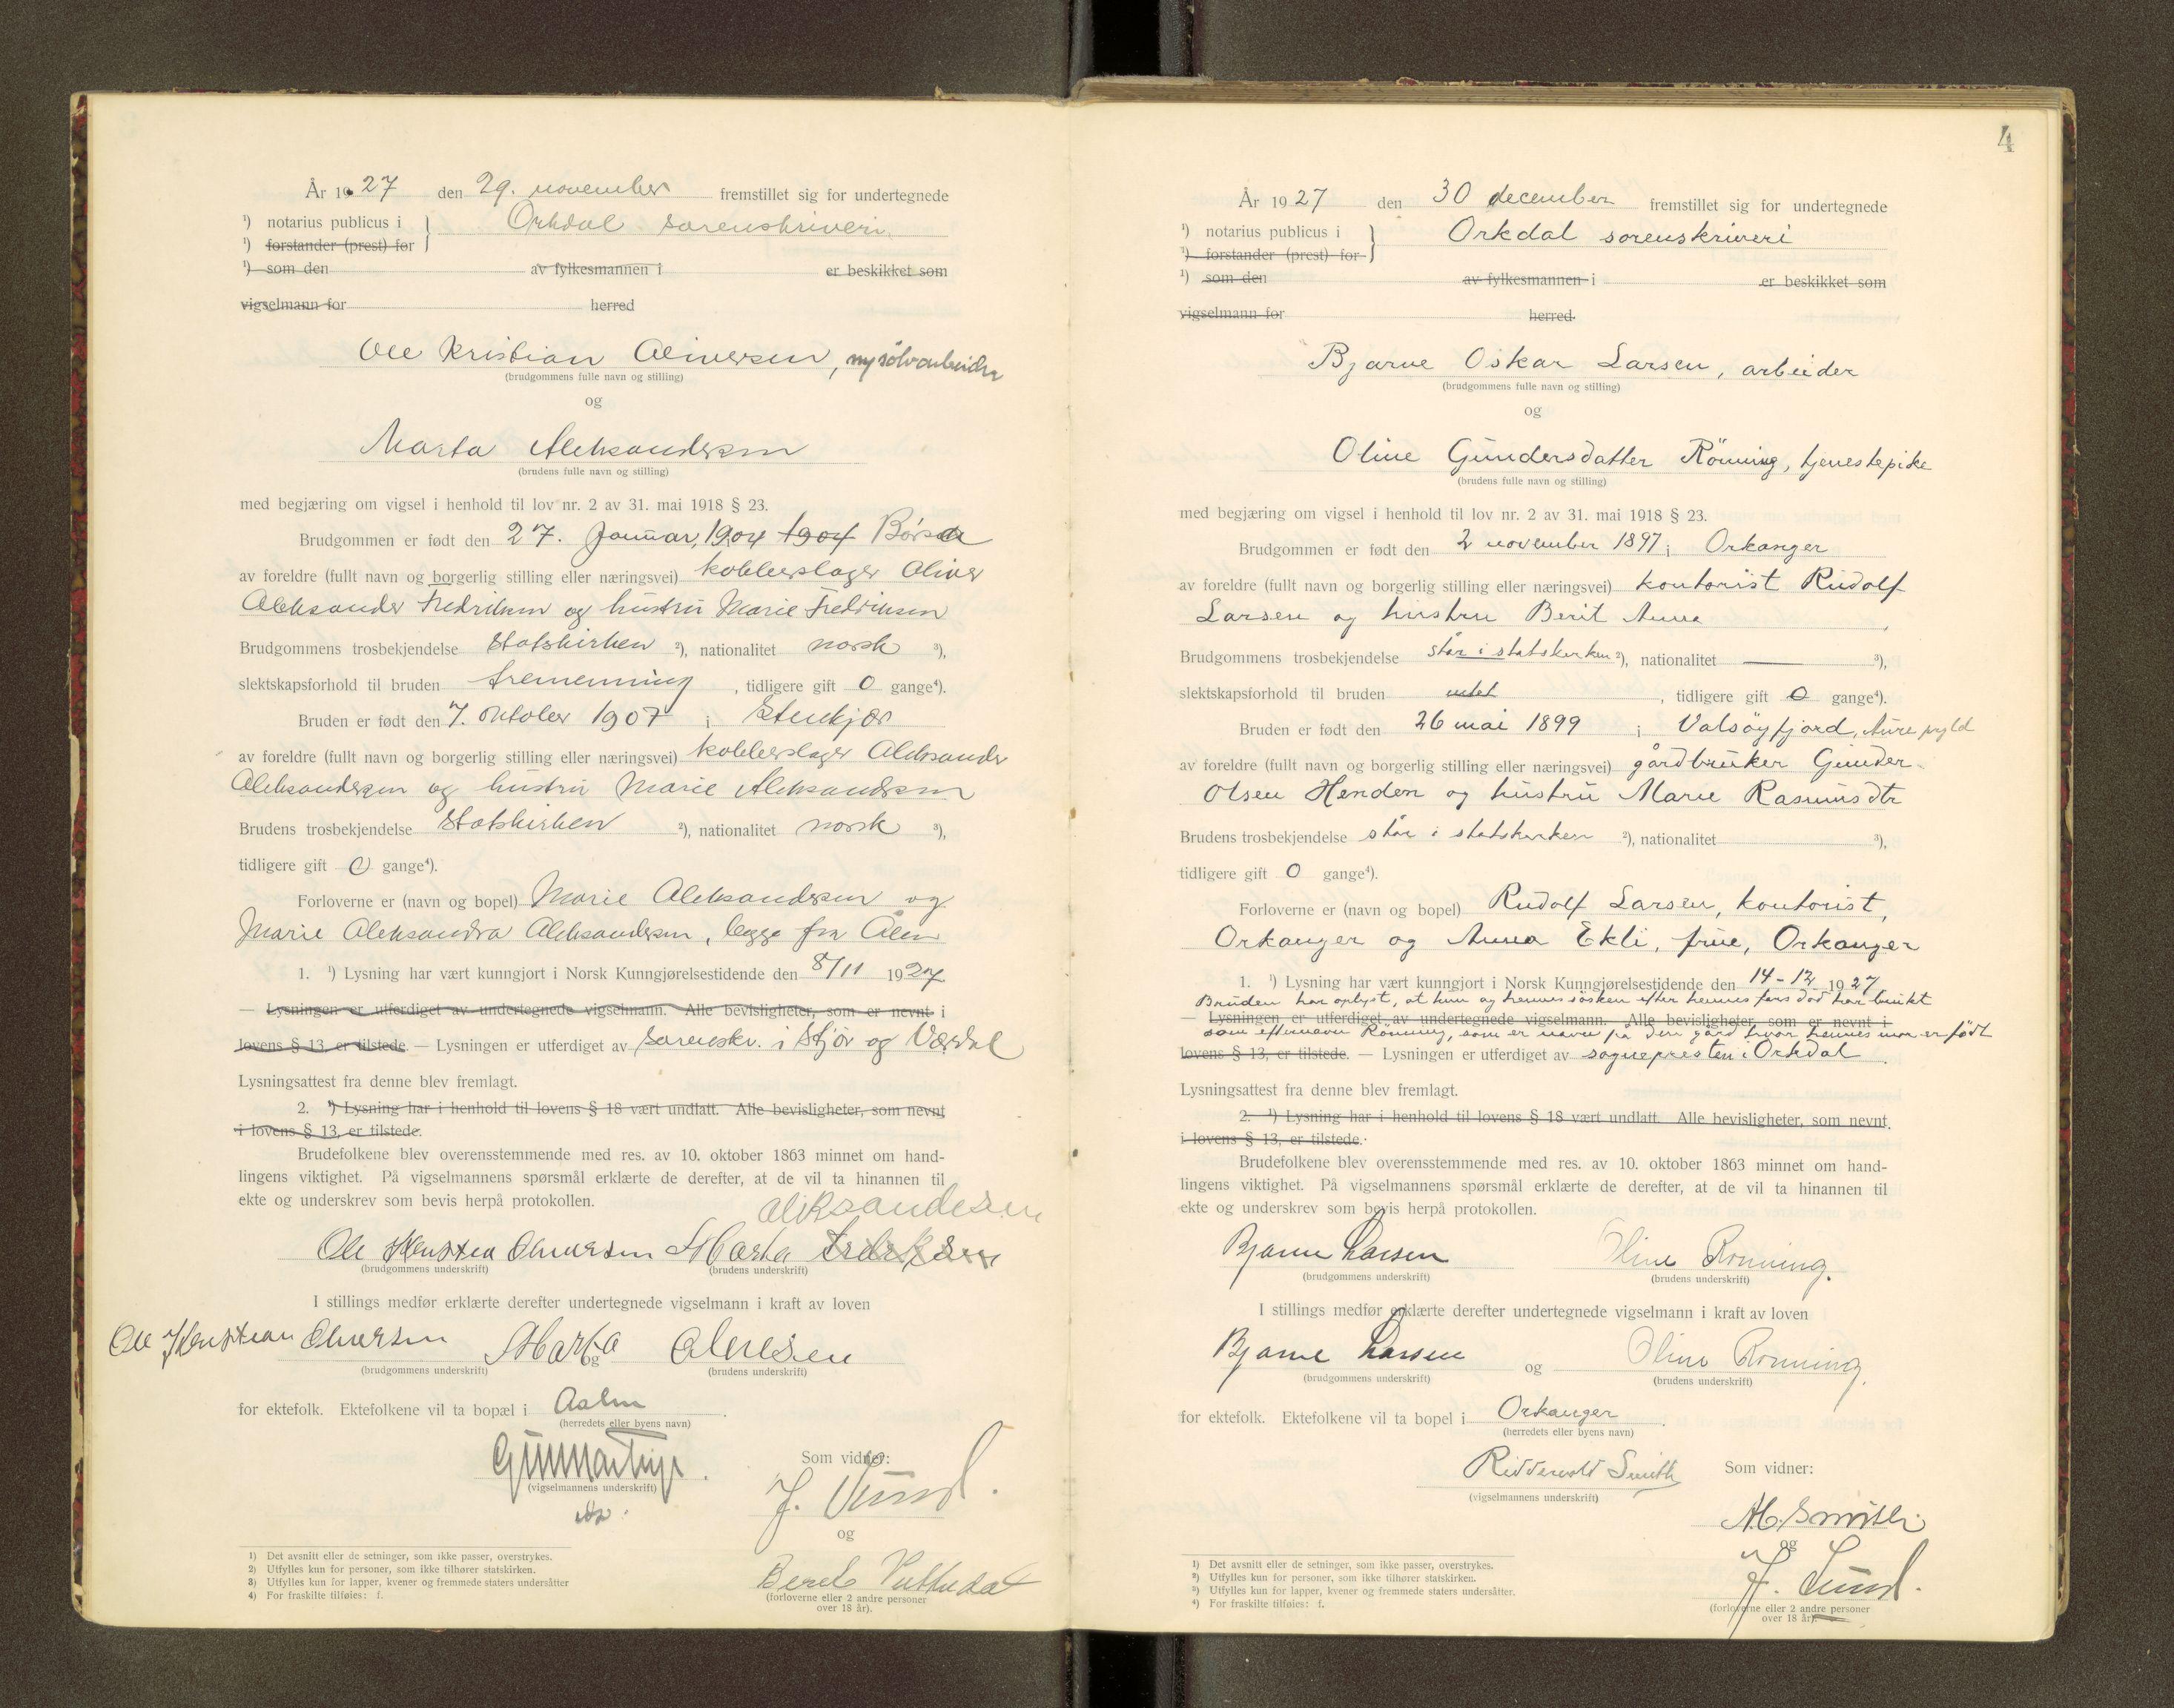 År 1927 den 29. november fremstillet sig for undertegnede
¹) notarius publicus i } Orkdal sorenskriveri
¹) forstander (prest) for
¹) som den av fylkesmannen i er beskikket som
vigselmann for herred
Ole Kristian Oliversen, nysølvarbeider
(brudgommens fulle navn og stilling)
og
Marta Aleksandersen
(brudens fulle navn og stilling)
med begjæring om vigsel i henhold til lov nr. 2 av 31. mai 1918 § 23.
Brudgommen er født den 27. Januar, 1904 1904 Børsa
av foreldre (fullt navn og borgerlig stilling eller næringsvei) kobberslager Oliver
Aleksander Fredriksen og hustru Marie Fredriksen
Brudgommens trosbekjendelse Statskirken ²), nationalitet norsk ³),
slektskapsforhold til bruden tremenning, tidligere gift 0 gange⁴).
Bruden er født den 7. oktober 1907 i Stenkjær
av foreldre (fullt navn og borgerlig stilling eller næringsvei) kobberslager Aleksander
Aleksandersen og hustru Marie Aleksandersen
Brudens trosbekjendelse Statskirken ²), nationalitet norsk ³),
tidligere gift 0 gange⁴).
Forloverne er (navn og bopel) Marie Aleksandersen og
Marie Aleksandra Aleksandersen, begge fra Ålen
1. ¹) Lysning har vært kunngjort i Norsk Kunngjørelsestidende den 8/11 1927
— Lysningen er utferdiget av undertegnede vigselmann. Alle bevisligheter, som er nevnt i
lovens § 13, er tilstede. — Lysningen er utferdiget av sorenskr. i Stjør og Værdal
Lysningsattest fra denne blev fremlagt.
2. ¹) Lysning har i henhold til lovens § 18 vært undlatt. Alle bevisligheter, som nevnt
i lovens § 13, er tilstede.
Brudefolkene blev overensstemmende med res. av 10. oktober 1863 minnet om hand-
lingens viktighet. På vigselmannens spørsmål erklærte de derefter, at de vil ta hinannen til
ekte og underskrev som bevis herpå protokollen.
aleksandesen
Ole Kristian Oliversen Marta
(brudgommens underskrift) (brudens underskrift)
I stillings medfør erklærte derefter undertegnede vigselmann i kraft av loven
Ole Kristian Oliversen og Marta
(brudgommens underskrift) (brudens underskrift)
for ektefolk. Ektefolkene vil ta bopæl i Aalen
(herredets eller byens navn)
(vigselmannens underskrift)
Som vidner:
J. Lund.
og
Beret
(forloverne eller 2 andre personer
over 18 år).
1) Det avsnitt eller de setninger, som ikke passer, overstrykes.
2) Utfylles kun for personer, som ikke tilhører statskirken.
3) Utfylles kun for lapper, kvener og fremmede staters undersåtter
4) For fraskilte tilføies: f.
4
År 1927 den 30 december fremstillet sig for undertegnede
¹) notarius publicus i } Orkdal sorenskriveri
¹) forstander (prest) for
¹) som den av fylkesmannen i er beskikket som
vigselmann for herred.
Bjarne Oskar Larsen, arbeider
(brudgommens fulle navn og stilling)
og
Oline Gundersdatter Rönning, tjenestepike
(brudens fulle navn og stilling)
med begjæring om vigsel i henhold til lov nr. 2 av 31. mai 1918 § 23.
Brudgommen er født den 2 november 1897 i Orkanger
av foreldre (fullt navn og borgerlig stilling eller næringsvei) kontorist Rudolf
Larsen og hustru Berit Anna
Brudgommens trosbekjendelse står i statskirken ²), nationalitet — ³),
slektskapsforhold til bruden intet, tidligere gift 0 gange⁴).
Bruden er født den 26 mai 1899 i Valsøyfjord, Aure
av foreldre (fullt navn og borgerlig stilling eller næringsvei) gårdbruker Gunder
Olsen Henden og hustru Marie Rasmusdtr
Brudens trosbekjendelse står i statskirken ²), nationalitet ³),
tidligere gift 0 gange⁴).
Forloverne er (navn og bopel) Rudolf Larsen, kontorist,
Orkanger og Anna Ekli, frue, Orkanger
1. ¹) Lysning har vært kunngjort i Norsk Kunngjørelsestidende den 14-12 1927
Bruden har oplyst, at hun og hennes søsken efter hennes fars död har brukt
— Lysningen er utferdiget av undertegnede vigselmann. Alle bevisligheter, som er nevnt i
som efternavn Rönning, som er navn på den gård hvor hennes mor er født
lovens § 13, er tilstede. — Lysningen er utferdiget av sognepresten i Orkdal
Lysningsattest fra denne blev fremlagt.
2. ¹) Lysning har i henhold til lovens § 18 vært undlatt. Alle bevisligheter, som nevnt
i lovens § 13, er tilstede.
Brudefolkene blev overensstemmende med res. av 10. oktober 1863 minnet om hand-
lingens viktighet. På vigselmannens spørsmål erklærte de derefter, at de vil ta hinannen til
ekte og underskrev som bevis herpå protokollen.
Bjarne Larsen Oline Ronning.
(brudgommens underskrift) (brudens underskrift)
I stillings medfør erklærte derefter undertegnede vigselmann i kraft av loven
Bjarne Larsen og Oline Ronning.
(brudgommens underskrift) (brudens underskrift)
for ektefolk. Ektefolkene vil ta bopel i Orkanger
(herredets eller byens navn)
Ridderwold Smith
(vigselmannens underskrift)
Som vidner:
M. Smith
og
J. Lund.
(forloverne eller 2 andre personer
over 18 år).
1) Det avsnitt eller de setninger, som ikke passer, overstrykes.
2) Utfylles kun for personer, som ikke tilhører statskirken.
3) Utfylles kun for lapper, kvener og fremmede staters undersåtter.
4) For fraskilte tilføies: f.